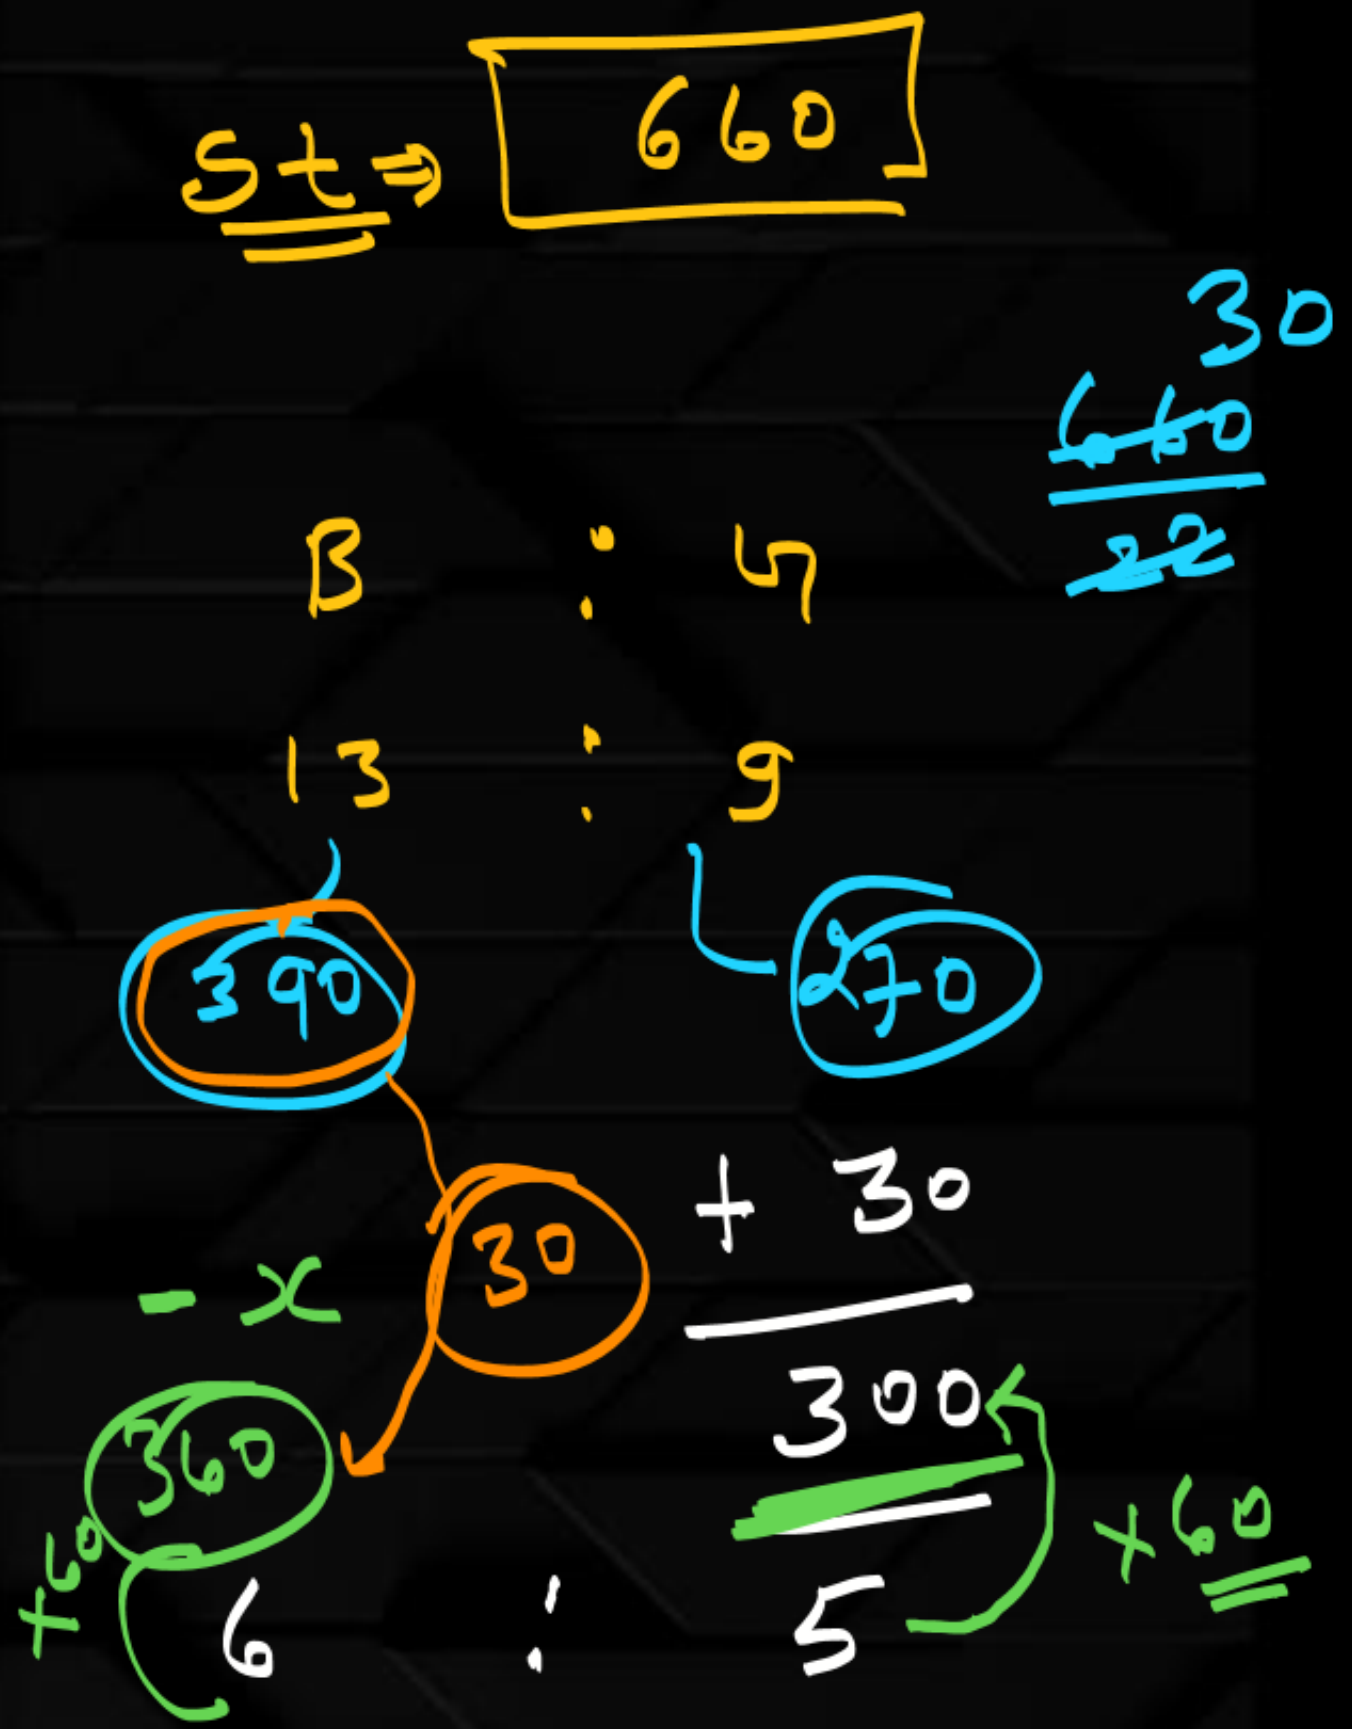 St ⇒ 660
30
660
22
B : G
13 : 9
390 270
+ 30
- x 30
300
360
+60 ×60
6 : 5